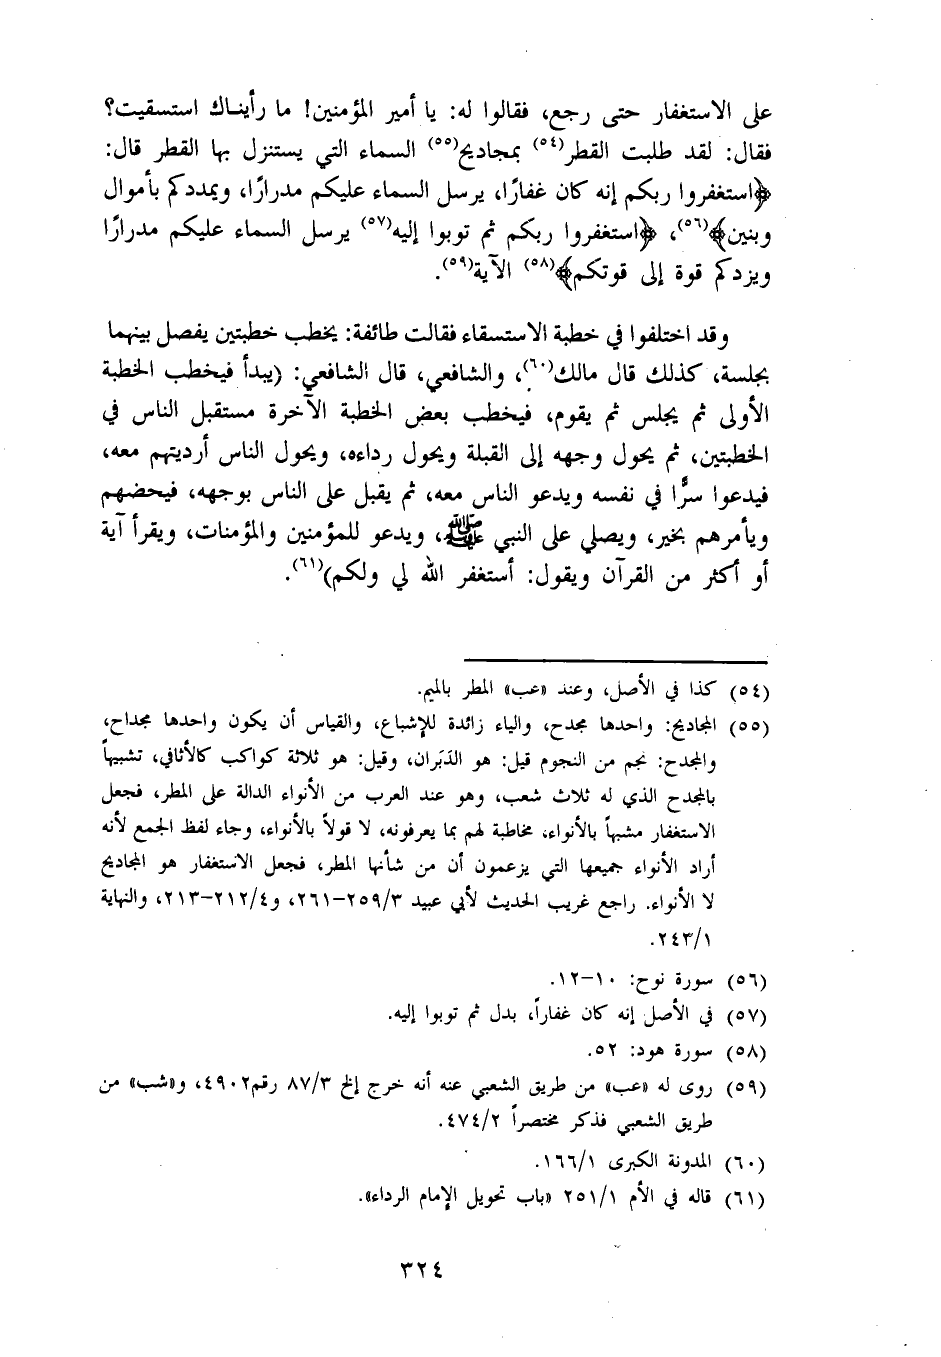 على الاستغفار حتى رجع، فقالوا له: يا أمير المؤمنين! ما رأيناك استسقيت؟
فقال: لقد طلبت القطر(٥٤) بمجاديح(٥٥) السماء التي يستنزل بها القطر قال:
﴿استغفروا ربكم إنه كان غفارًا، يرسل السماء عليكم مدرارًا، ويمددكم بأموال
وبنين﴾(٥٦)، ﴿استغفروا ربكم ثم توبوا إليه(٥٧) يرسل السماء عليكم مدرارًا
ويزدكم قوة إلى قوتكم﴾(٥٨) الآية(٥٩).
وقد اختلفوا في خطبة الاستسقاء فقالت طائفة: يخطب خطبتين يفصل بينهما
بجلسة، كذلك قال مالك(٦٠)، والشافعي، قال الشافعي: (يبدأ فيخطب الخطبة
الأولى ثم يجلس ثم يقوم، فيخطب بعض الخطبة الآخرة مستقبل الناس في
الخطبتين، ثم يحول وجهه إلى القبلة ويحول رداءه، ويحول الناس أرديتهم معه،
فيدعوا سرًّا في نفسه ويدعو الناس معه، ثم يقبل على الناس بوجهه، فيحضهم
ويأمرهم بخير، ويصلي على النبي ﷺ، ويدعو للمؤمنين والمؤمنات، ويقرأ آية
أو أكثر من القرآن ويقول: أستغفر الله لي ولكم)(٦١).
(٥٤) كذا في الأصل، وعند «عب» المطر بالميم.
(٥٥) المجاديح: واحدها مجدح، والياء زائدة للإشباع، والقياس أن يكون واحدها مجداح،
والمجدح: نجم من النجوم قيل: هو الدَبَران، وقيل: هو ثلاثة كواكب كالأثافي، تشبيهاً
بالمجدح الذي له ثلاث شعب، وهو عند العرب من الأنواء الدالة على المطر، فجعل
الاستغفار مشبهاً بالأنواء، مخاطبة لهم بما يعرفونه، لا قولاً بالأنواء، وجاء لفظ الجمع لأنه
أراد الأنواء جميعها التي يزعمون أن من شأنها المطر، فجعل الاستغفار هو المجاديح
لا الأنواء. راجع غريب الحديث لأبي عبيد ٢٥٩/٣-٢٦١، و٢١٢/٤-٢١٣، والنهاية
٢٤٣/١.
(٥٦) سورة نوح: ١٠-١٢.
(٥٧) في الأصل إنه كان غفاراً، بدل ثم توبوا إليه.
(٥٨) سورة هود: ٥٢.
(٥٩) روى له «عب» من طريق الشعبي عنه أنه خرج إلخ ٨٧/٣ رقم٤٩٠٢، و«شب» من
طريق الشعبي فذكر مختصراً ٤٧٤/٢.
(٦٠) المدونة الكبرى ١٦٦/١.
(٦١) قاله في الأم ٢٥١/١ «باب تحويل الإمام الرداء».
٣٢٤